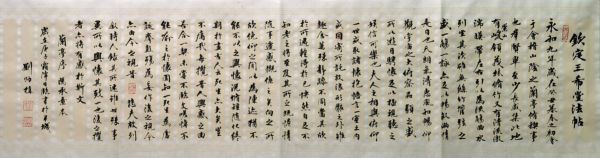 欽定三希堂法帖
永和九年歲在癸丑暮春之初會
于會稽山陰之蘭亭脩稧事
也群賢畢至少長咸集此地
有峻領茂林脩竹又有清流激
湍暎帶左右引以為流觴曲水
列坐其次雖無絲竹管弦之
盛一觴一詠亦足以暢敘幽情
是日也天朗氣清惠風和暢仰
觀宇宙之大俯察品類之盛
所以遊目騁懷足以極視聽之
娛信可樂也夫人之相與俯仰
一世或取諸懷抱悟言一室之內
或因寄所託放浪形骸之外雖
趣舍萬殊靜躁不同當其欣
於所遇暫得於己快然自足不
知老之將至及其所之既惓情
隨事遷感慨係之矣向之所
欣俛仰之間以為陳迹猶不
能不以之興懷況脩短隨化終
期於盡古人云死生亦大矣豈
不痛哉每攬昔人興感之由
若合一契未嘗不臨文嗟悼不
能喻之於懷固知一死生為虛
誕齊彭殤為妄作後之視今
亦由今之視昔悲夫故列
敘時人錄其所述雖世殊事
異所以興懷其致一也後之攬
者亦將有感於斯文
蘭亭序 馮承素本